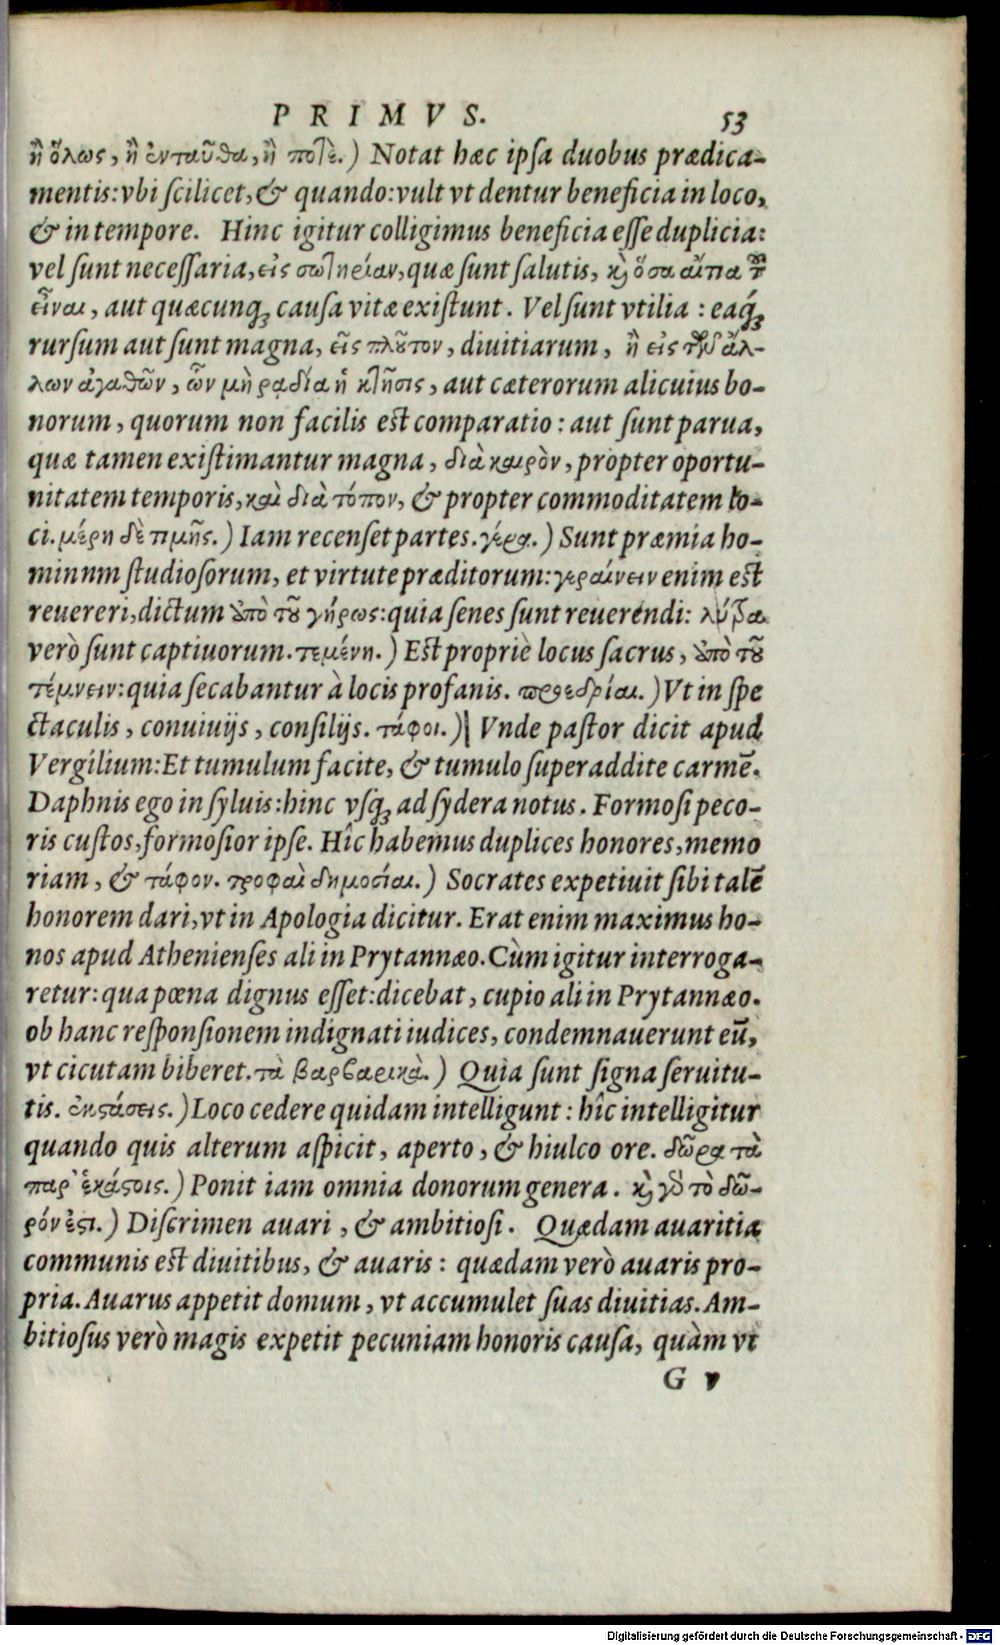 P R I M V S. 53
ἢ ὅλως, ἢ ἐνταῦθα, ἢ ποτὲ.) Notat hæc ipſa duobus prædica-
mentis: vbi ſcilicet, & quando: vult vt dentur beneficia in loco,
& in tempore. Hinc igitur colligimus beneficia eſſe duplicia:
vel ſunt neceſſaria, εἰς σωτηρίαν, quæ ſunt ſalutis, καὶ ὅσα αἴτια τοῦ
εἶναι, aut quæcunq; cauſa vitæ exiſtunt. Vel ſunt vtilia : eaq́;
rurſum aut ſunt magna, εἰς πλοῦτον, diuitiarum, ἢ εἰς τῶν ἄλ-
λων ἀγαθῶν, ὧν μὴ ῥαδία ἡ κτῆσις, aut cæterorum alicuius bo-
norum, quorum non facilis est comparatio : aut ſunt parua,
quæ tamen exiſtimantur magna, διὰ καιρὸν, propter oportu-
nitatem temporis, καὶ διὰ τόπον, & propter commoditatem lo-
ci. μέρη δὲ τιμῆς.) Iam recenſet partes. γέρα.) Sunt præmia ho-
minnm ſtudioſorum, et virtute præditorum: γεραίνειν enim est
reuereri, dictum ἀπὸ τοῦ γήρως: quia ſenes ſunt reuerendi: λύτρα
verò ſunt captiuorum. τεμένη.) Est propriè locus ſacrus, ἀπὸ τοῦ
τέμνειν: quia ſecabantur à locis profanis. προεδρίαι.) Vt in ſpe
ctaculis, conuiuijs, conſilijs. τάφοι.) Vnde paſtor dicit apud
Vergilium: Et tumulum facite, & tumulo ſuperaddite carmē.
Daphnis ego in ſyluis: hinc vſq; ad ſydera notus. Formoſi peco-
ris cuſtos, formoſior ipſe. Hîc habemus duplices honores, memo
riam, & τάφον. τροφαὶ δημοσίαι.) Socrates expetiuit ſibi talē
honorem dari, vt in Apologia dicitur. Erat enim maximus ho-
nos apud Athenienſes ali in Prytannæo. Cùm igitur interroga-
retur: qua pœna dignus eſſet: dicebat, cupio ali in Prytannæo.
ob hanc reſponſionem indignati iudices, condemnauerunt eū,
vt cicutam biberet. τὰ βαρβαρικὰ.) Quia ſunt ſigna ſeruitu-
tis. ἐκστάσεις.) Loco cedere quidam intelligunt : hîc intelligitur
quando quis alterum aſpicit, aperto, & hiulco ore. δῶρα τὰ
παρ' ἑκάστοις.) Ponit iam omnia donorum genera. καὶ γὰρ τὸ δῶ-
ρόν ἐστι.) Diſcrimen auari, & ambitioſi. Quædam auaritia
communis est diuitibus, & auaris : quædam verò auaris pro-
pria. Auarus appetit domum, vt accumulet ſuas diuitias. Am-
bitioſus verò magis expetit pecuniam honoris cauſa, quàm vt
G v
Digitalisierung gefördert durch die Deutsche Forschungsgemeinschaft - DFG